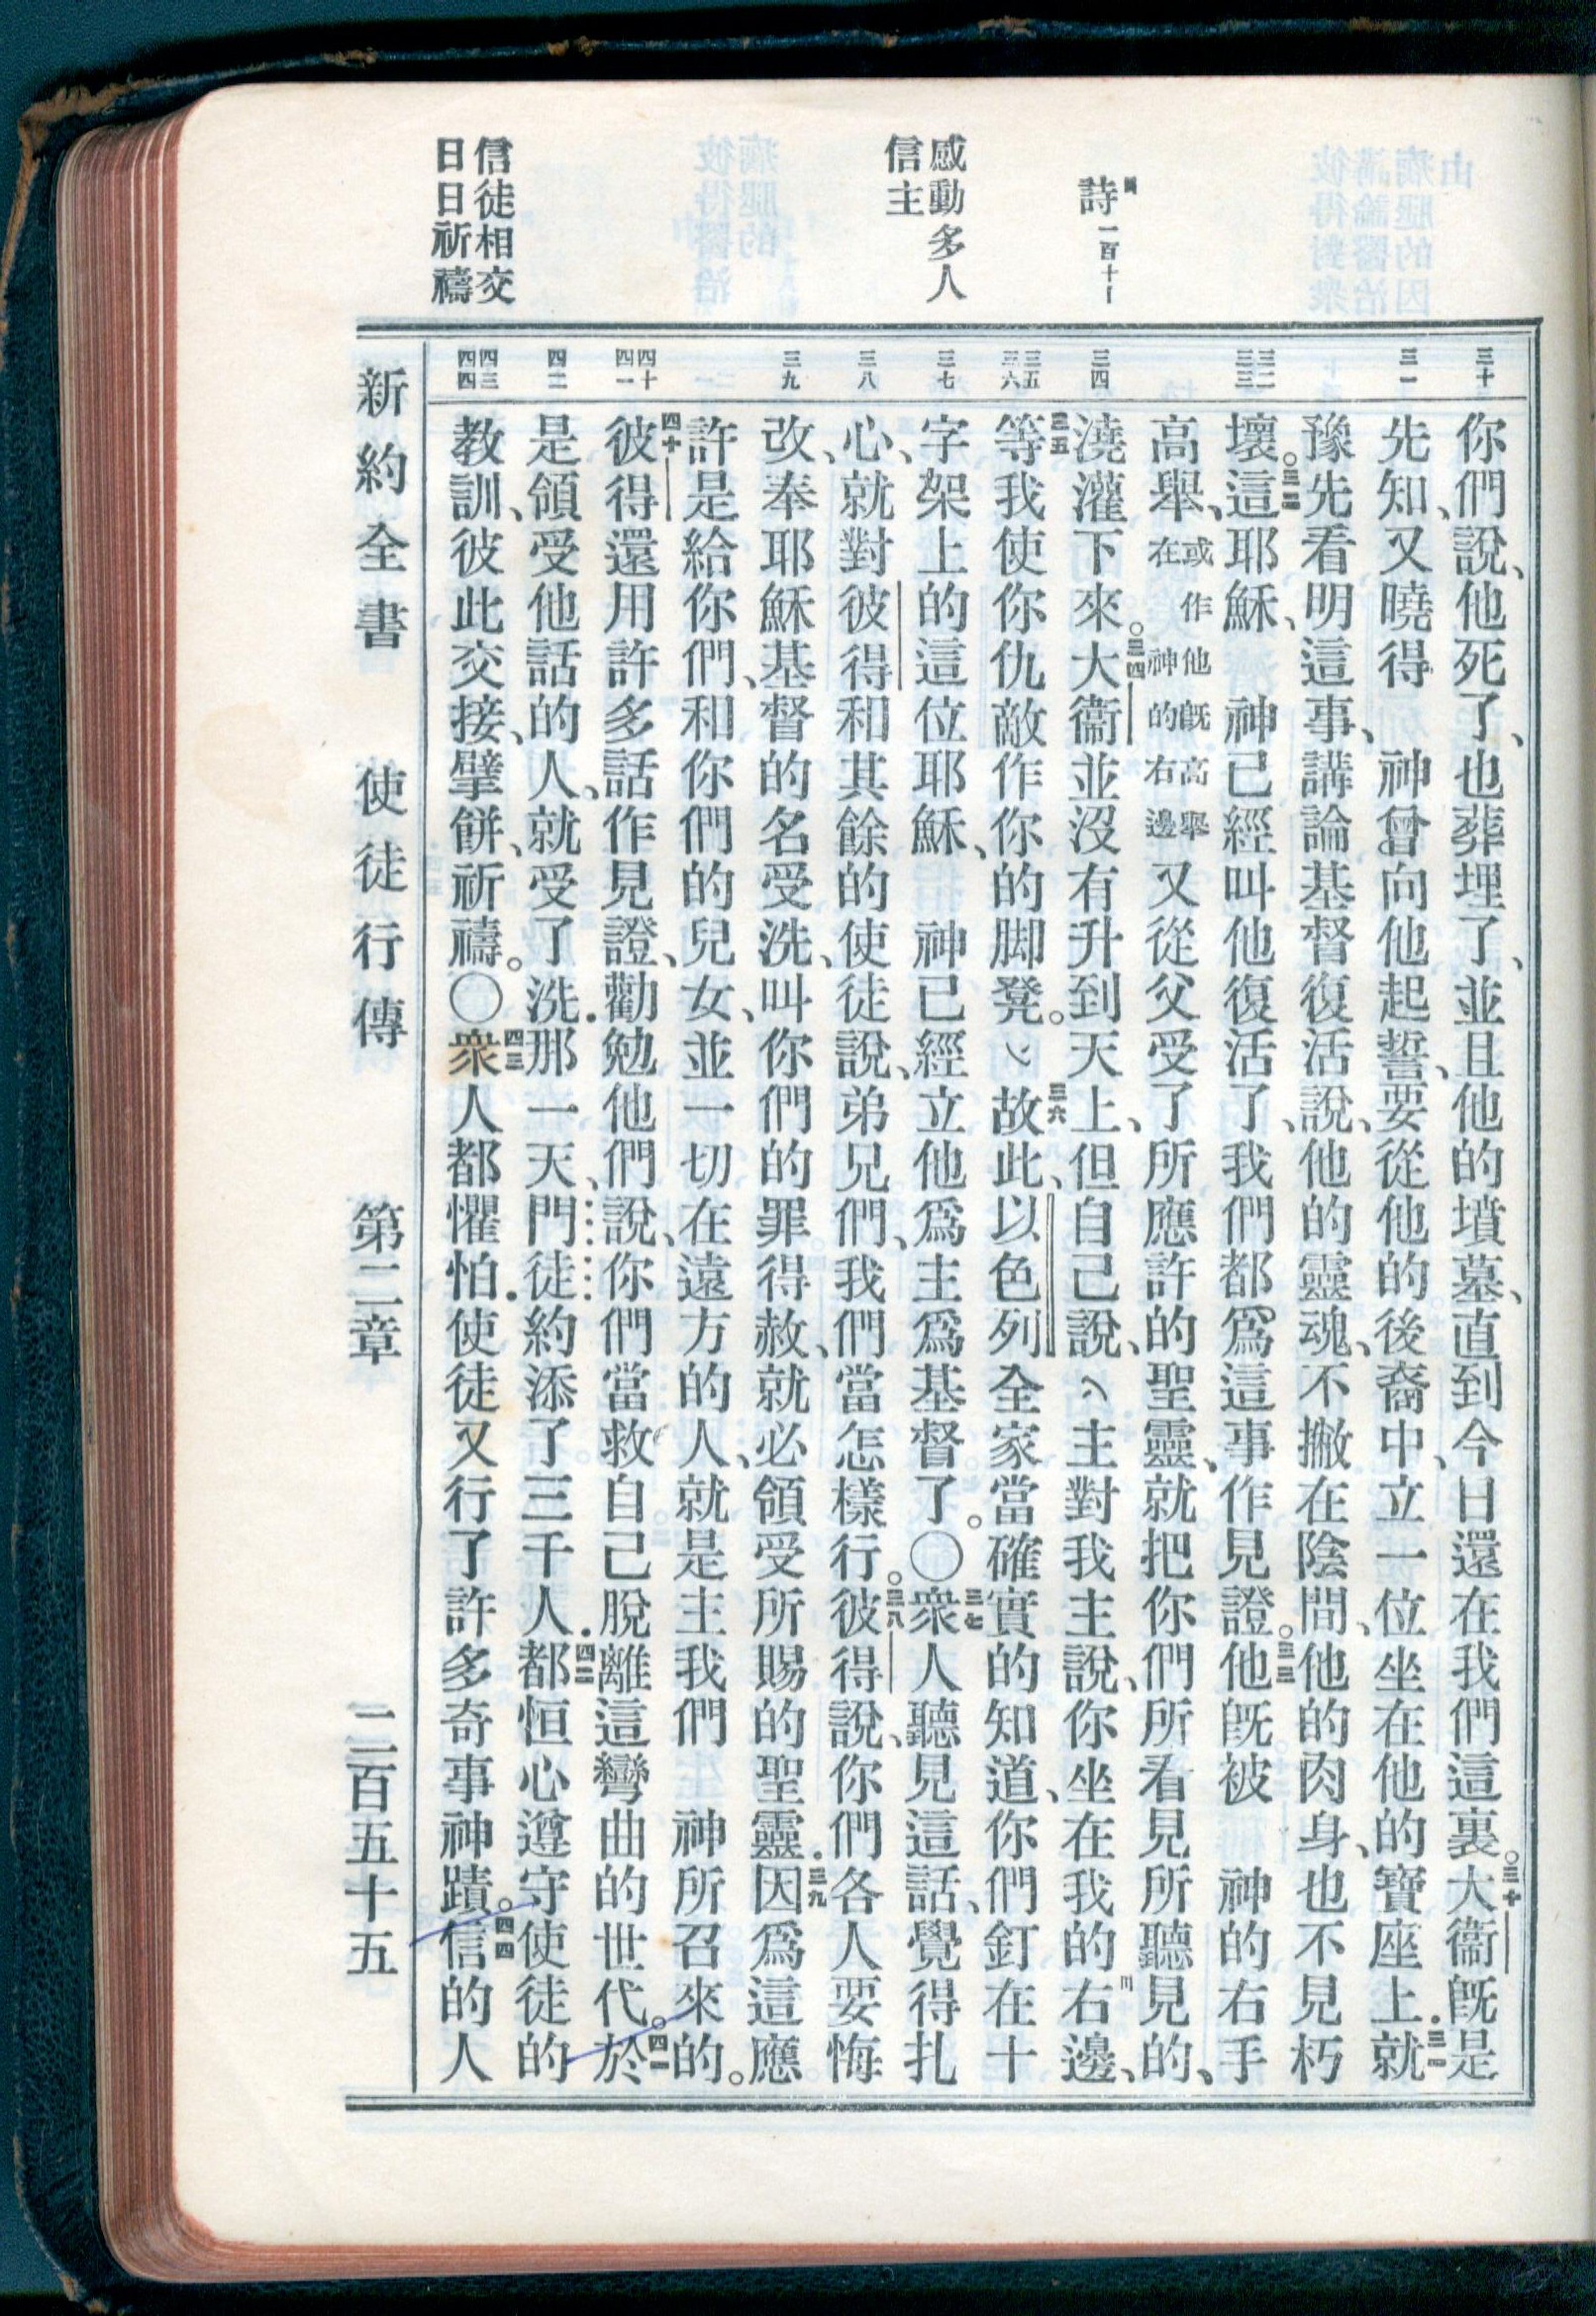 詩一百十一
感動多人
信主
信徒相交
日日祈禱
三十
三一
三二
三三
三四
三五
三六
三七
三八
三九
四十
四一
四二
四三
四四
你們說、他死了、也葬埋了、並且他的墳墓、直到今日還在我們這裏。三十大衞旣是
先知、又曉得 神曾向他起誓、要從他的後裔中、立一位坐在他的寶座上.三一就
豫先看明這事、講論基督復活說、他的靈魂、不撇在陰間、他的肉身、也不見朽
壞。三二這耶穌、 神已經叫他復活了、我們都爲這事作見證。三三他旣被 神的右手
高舉、或作他旣高舉在神的右邊又從父受了所應許的聖靈、就把你們所看見所聽見的、
澆灌下來。三四大衞並沒有升到天上、但自己說、主對我主說、你坐在我的右邊、
三五等我使你仇敵作你的脚凳。三六故此、以色列全家當確實的知道、你們釘在十
字架上的這位耶穌、 神已經立他爲主爲基督了。〇三七衆人聽見這話、覺得扎
心、就對彼得和其餘的使徒說、弟兄們、我們當怎樣行。三八彼得說、你們各人要悔
改、奉耶穌基督的名受洗、叫你們的罪得赦、就必領受所賜的聖靈.三九因爲這應
許是給你們、和你們的兒女、並一切在遠方的人、就是主我們 神所召來的。
四十彼得還用許多話作見證、勸勉他們說、你們當救自己脫離這彎曲的世代。四一於
是領受他話的人、就受了洗.那一天、門徒約添了三千人.四二都恒心遵守使徒的
教訓、彼此交接、擘餅、祈禱。〇四三衆人都懼怕.使徒又行了許多奇事神蹟。四四信的人
新約全書 使徒行傳 第二章 二百五十五